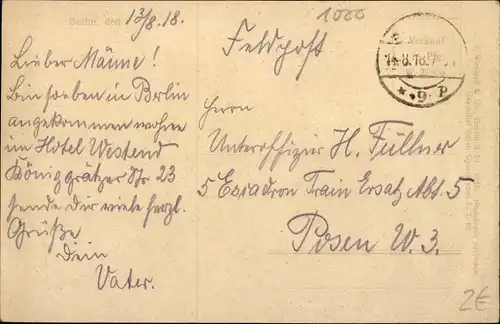 Berlin, den 13/8.18.
1000
Lieber Männe!
Bin soeben in Berlin
angekommen wohne
im Hotel Westend
Königgrätzer Str 23
sende Dir viele herzl.
Grüße
Dein
Vater.
Feldpost
14.8.18.
* 9. P
Verkauf
Herrn
Unteroffizier H. Füllner
5 Escadron Train Ersatz Abt. 5
Posen W. 3.
2€